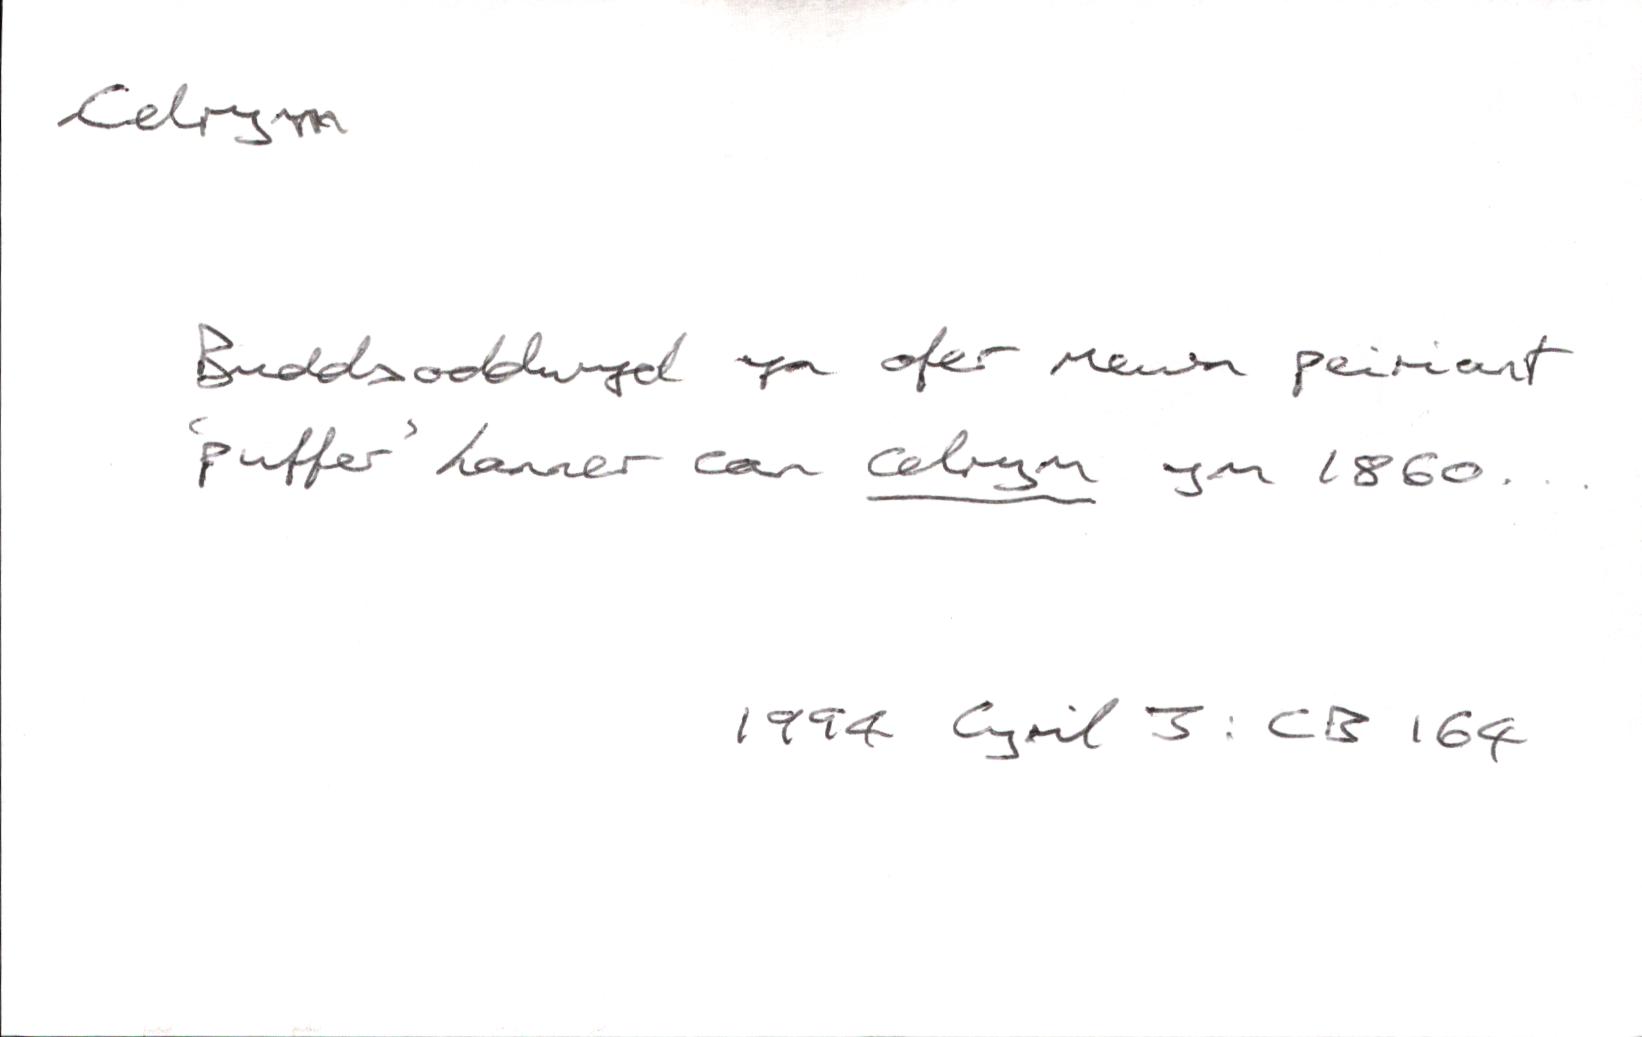 Celrym
Buddsoddwyd yn ofer mewn peiriant
'puffer' hanner can celrym yn 1860...
1994 Cyril J: CB 164